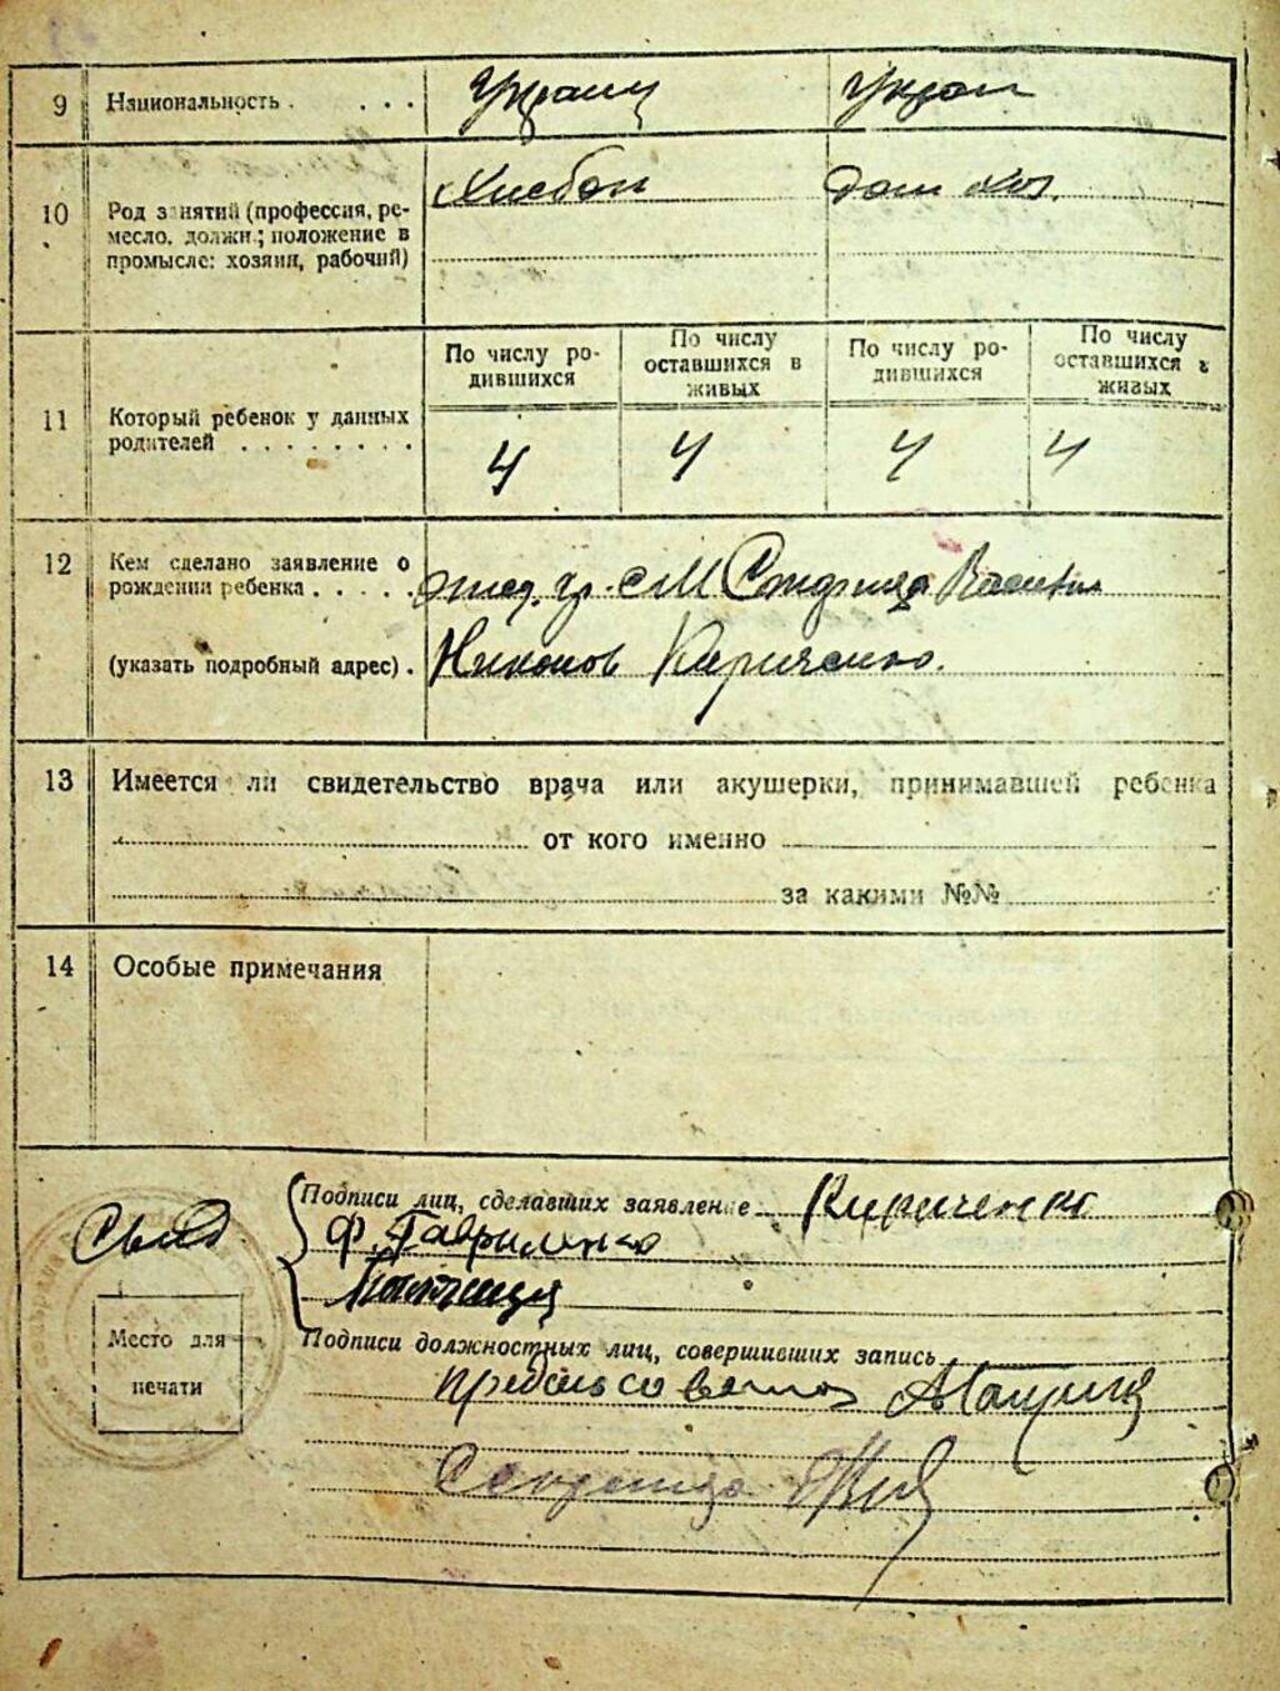 9 Национальность . . . . Украинц Украин
10 Род занятий (профессия, ре-
месло, должн.; положение в
промысле: хозяин, рабочий)
Хлебоп Дом хоз.
По числу ро-
дившихся
По числу
оставшихся в
живых
По числу ро-
дившихся
По числу
оставшихся в
живых
11 Который ребенок у данных
родителей . . . . . . . .
4 4 4 4
12 Кем сделано заявление о
рождении ребенка . . . . .
(указать подробный адрес) . Кириченко.
13 Имеется ли свидетельство врача или акушерки, принимавшей ребенка
от кого именно
за какими №№
14 Особые примечания
Подписи лиц, сделавших заявление Кириченко
Свид Ф. Гавриленко
Место для
печати
Подписи должностных лиц, совершивших запись